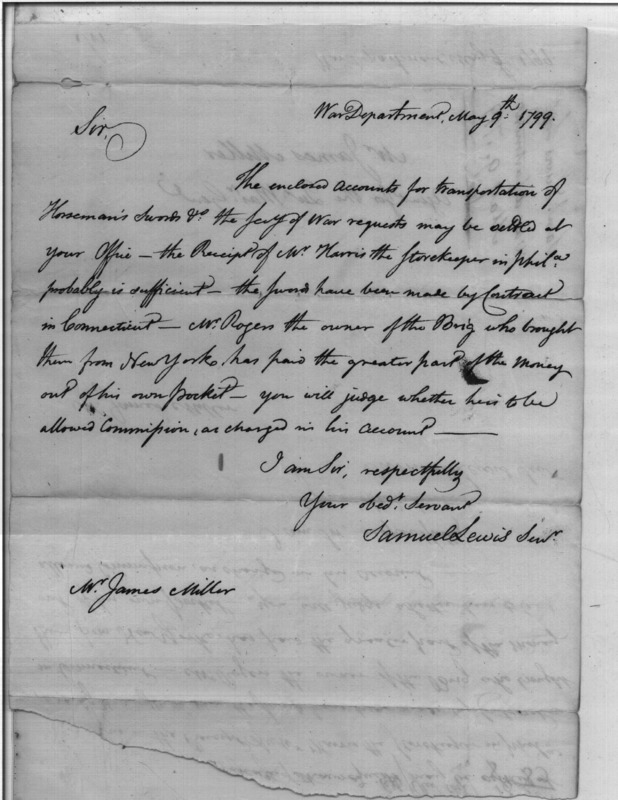 War Department, May 9th. 1799.
Sir,
The enclosed Accounts for transportation of
Horseman's Swords &c. the Secy of War requests may be settled at
your Office — the Receipt of Mr. Harris the Storekeeper in phila.
probably is sufficient — the swords have been made by Contract
in Connecticut — Mr. Rogers the owner of the Brig who brought
them from New York, has paid the greater part of the money
out of his own pocket — you will judge whether he is to be
allowed Commission, as charged in his account —
I am Sir, respectfully
Your obedt. Servant
Samuel Lewis Senr.
Mr. James Miller